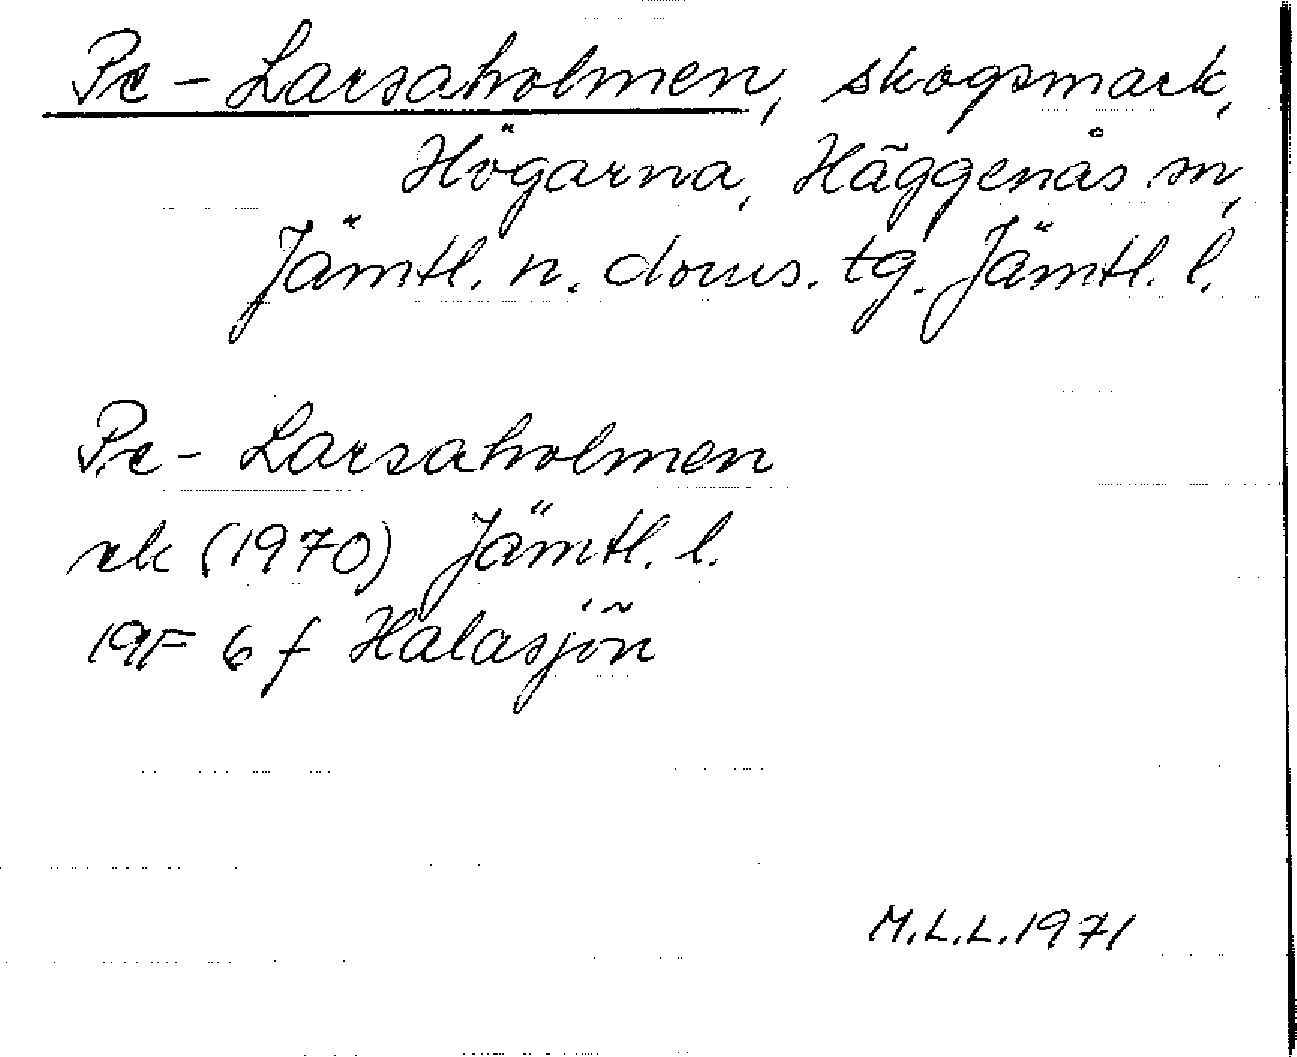 Pe-Larsaholmen, skogsmark,
Högarna, Häggenås sn,
Jämtl. n. doms. tg. Jämtl. l.
Pe-Larsaholmen
rek (1970) Jämtl. l.
19F 6 f Halasjön
M.L.L. 1971